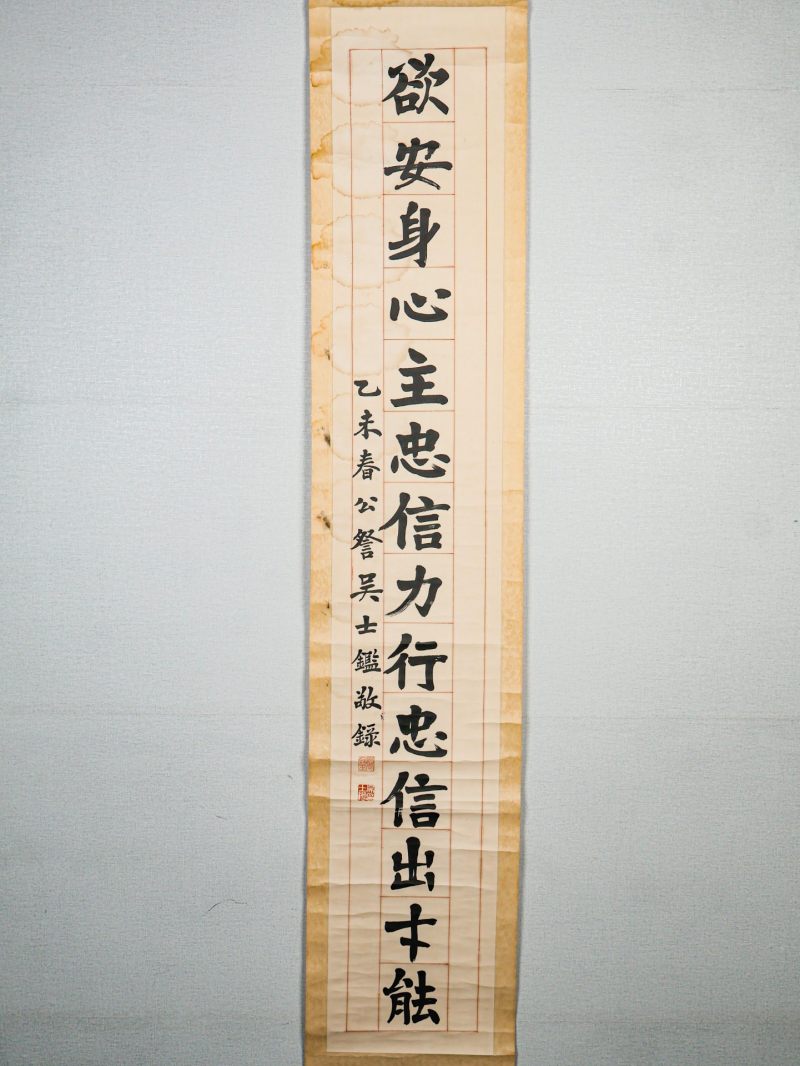 欲安身心主忠信力行忠信出才能
乙未春公詧吴士鑑敬錄